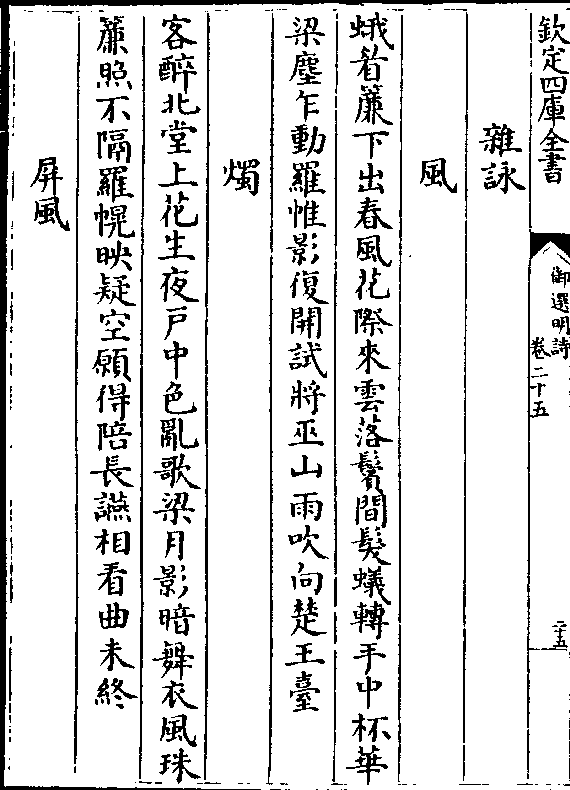 欽定四庫全書
御選明詩
卷二十五
二十五
雜詠
風
蛾眉簾下出春風花際來雲落鬢間髮蟻轉手中杯華
梁塵乍動羅帷影復開試將巫山雨吹向楚王臺
燭
客醉北堂上花生夜戸中色亂歌梁月影暗舞衣風珠
簾照不隔羅幌映疑空願得陪長讌相看曲未終
屏風